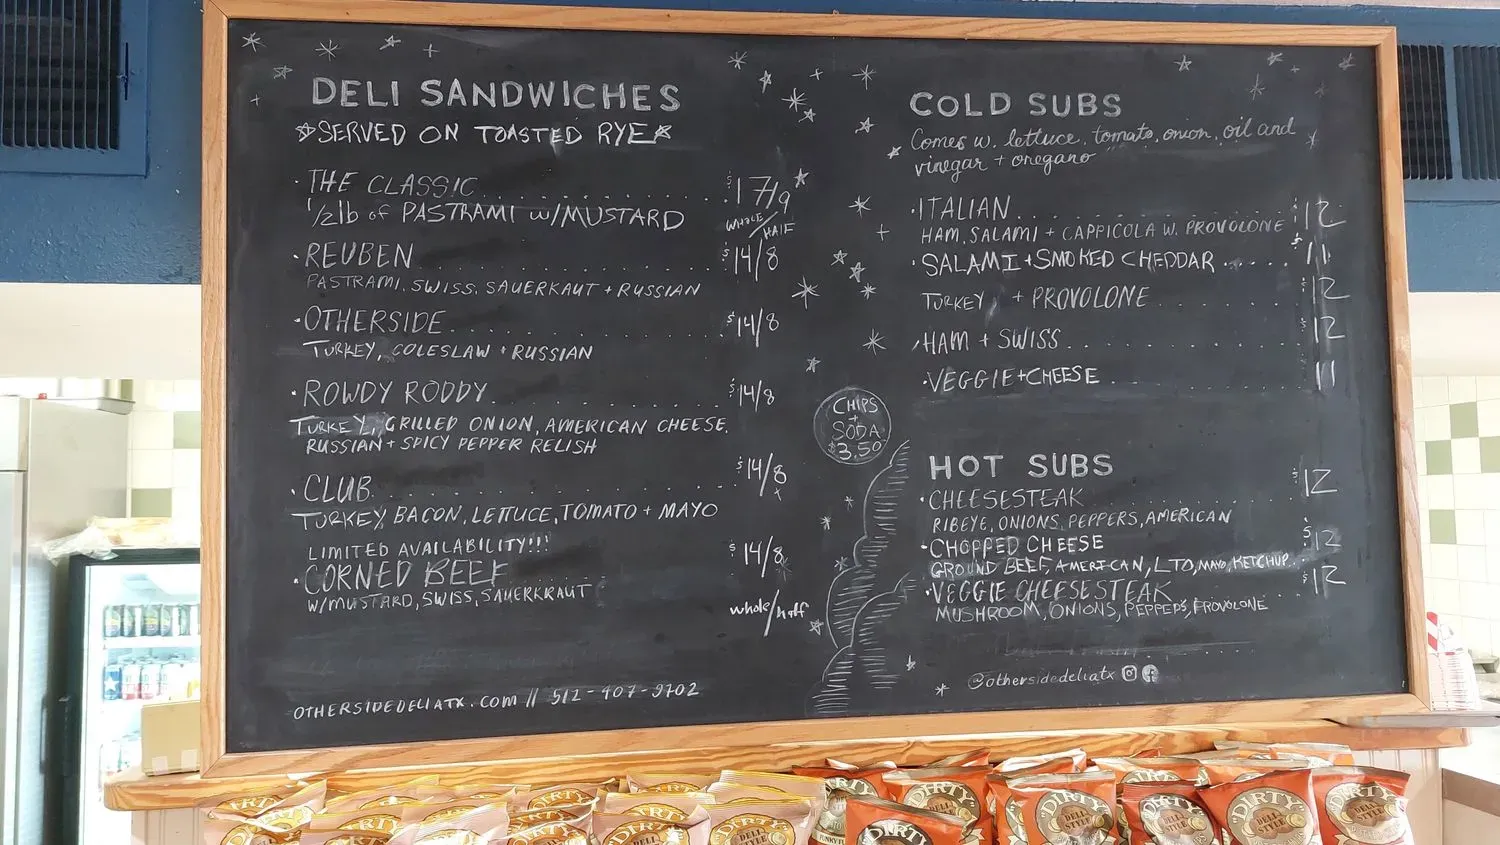 DELI SANDWICHES
SERVED ON TOASTED RYE
· THE CLASSIC $17/9
1/2lb of PASTRAMI w/MUSTARD
WHOLE/HALF
· REUBEN $14/8
PASTRAMI, SWISS, SAUERKAUT + RUSSIAN
· OTHERSIDE $14/8
TURKEY, COLESLAW + RUSSIAN
· ROWDY RODDY $14/8
TURKEY, GRILLED ONION, AMERICAN CHEESE,
RUSSIAN + SPICY PEPPER RELISH
· CLUB $14/8
TURKEY, BACON, LETTUCE, TOMATO + MAYO
LIMITED AVAILABILITY!!!
· CORNED BEEF $14/8
W/MUSTARD, SWISS, SAUERKRAUT
whole/half
OTHERSIDEDELIATX.COM // 512-407-9702
CHIPS
+
SODA
$3.50
COLD SUBS
Comes w. lettuce, tomato, onion, oil and
vinegar + oregano
· ITALIAN $12
HAM, SALAMI + CAPPICOLA W. PROVOLONE
· SALAMI + SMOKED CHEDDAR $11
TURKEY + PROVOLONE $12
· HAM + SWISS $12
· VEGGIE + CHEESE 11
HOT SUBS
· CHEESESTEAK $12
RIBEYE, ONIONS, PEPPERS, AMERICAN
· CHOPPED CHEESE $12
GROUND BEEF, AMERICAN, LTO, MAYO, KETCHUP
· VEGGIE CHEESESTEAK $12
MUSHROOM, ONIONS, PEPPERS, PROVOLONE
@othersidedeliatx
"DIRTY"
DELI
STYLE